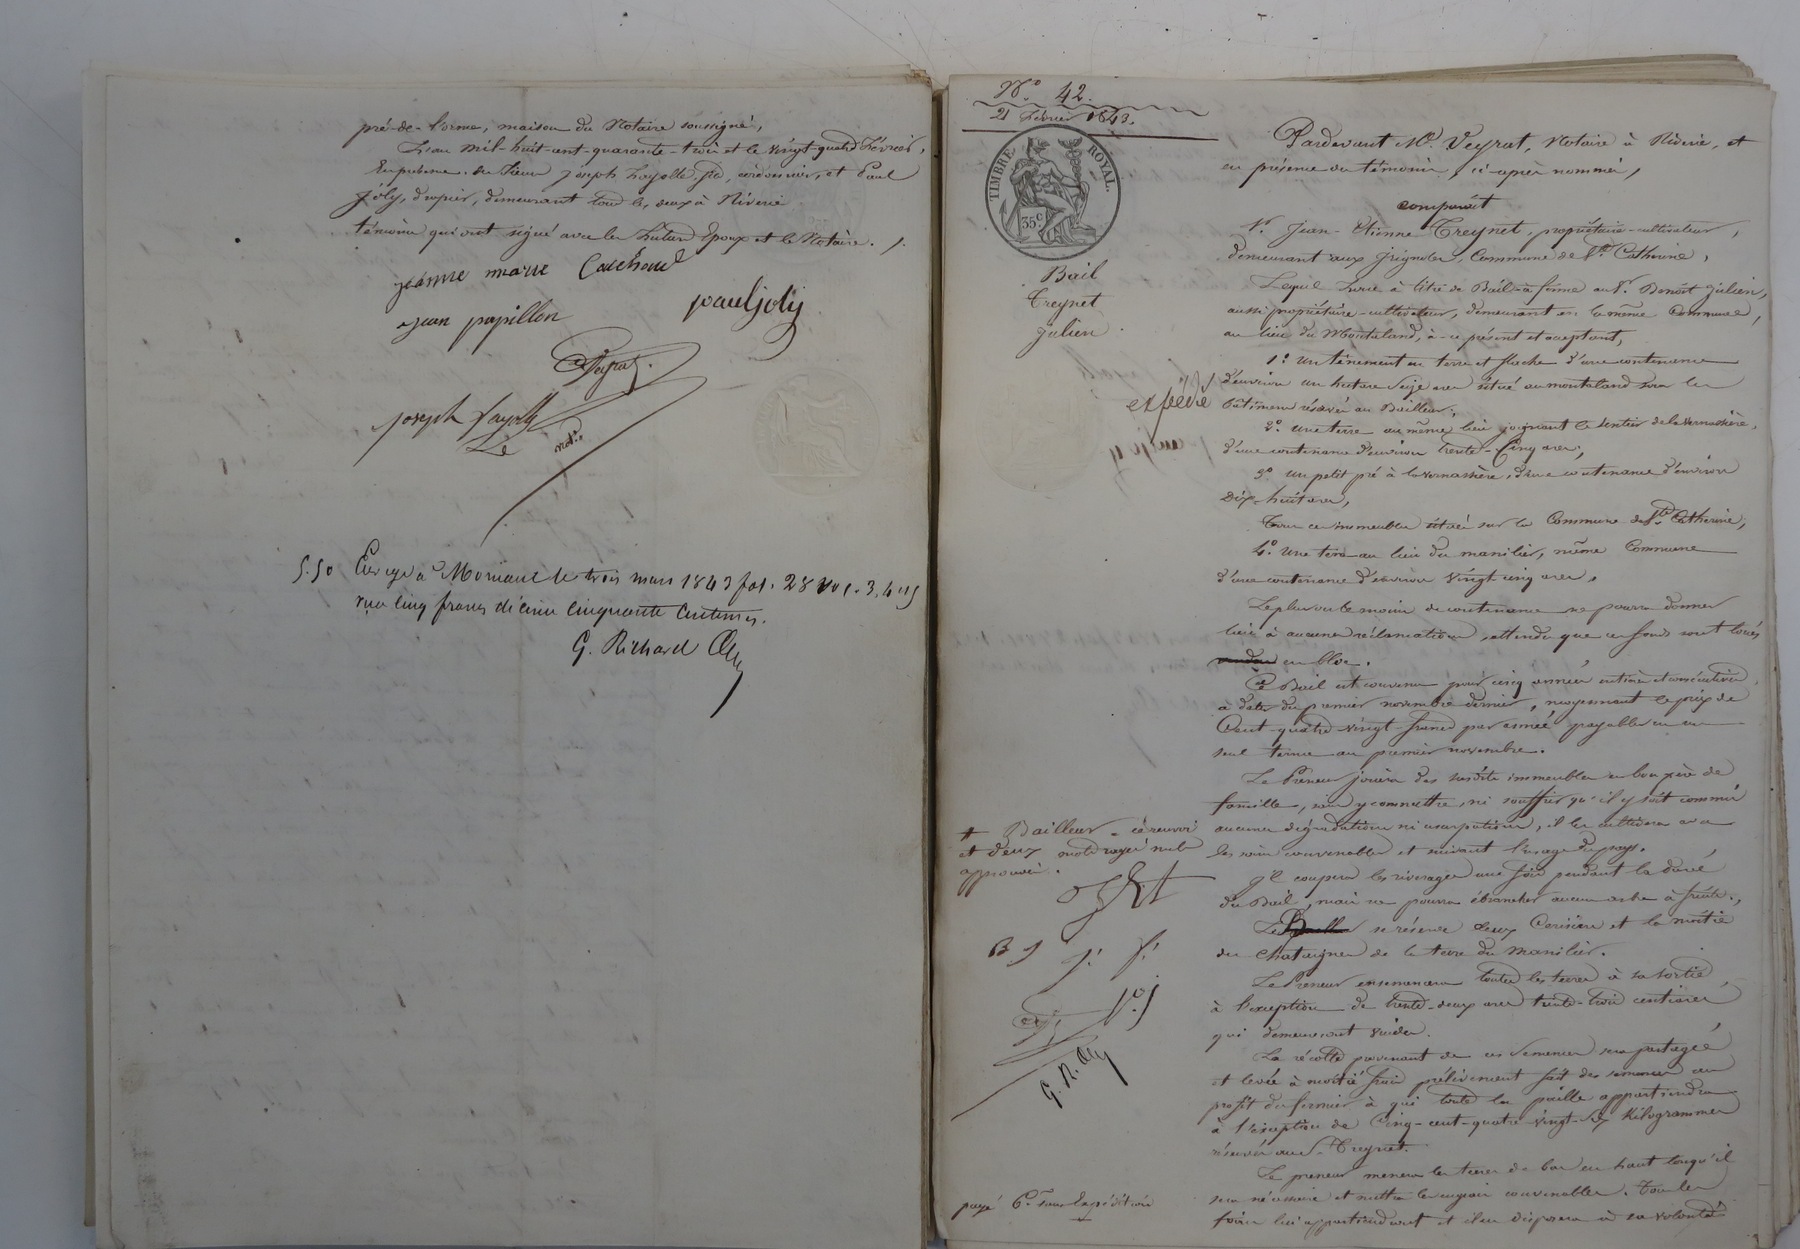 pré-de-l'orme, maison du Notaire soussigné,
L'an mil-huit-cent-quarante-trois et le vingt-quatre Février,
En présence du sieur Joseph Fayolle fils, cordonnier, et Paul
Joly, drapier, demeurant tous les deux à Riverie
témoins qui ont signé avec les futurs Epoux et le Notaire. /.
jeanne marie
jean papillon
paul joly
Veyrat
joseph fayolle
Le not.re
5.50 Enregé à Mornant le trois mars 1843 fol. 28 vo c. 3, 4 et 5
reçu cinq francs décime cinquante centimes.
G. Richard
N.o 42.
21 Février 1843.
TIMBRE ROYAL.
35c
Bail
Treynet
Julien
expédié
Pardevant Me. Veyrat, Notaire à Riverie, et
en présence des témoins, ci-après nommés,
comparait
Sr. Jean-Etienne Treynet, propriétaire-cultivateur,
demeurant aux Jrignoles, Commune de Ste. Catherine,
Lequel livre à titre de Bail-à-ferme au Sr. Benoit Julien,
aussi propriétaire-cultivateur, demeurant en la même Commune,
au lieu du Montaland, à ce présent et acceptant,
1.o Un tènement en terre et flache d'une contenance
d'environ un hectare seize ares situé au montaland sous les
bâtimens réservés au Bailleur,
2.o Une terre au même lieu joignant le sentier de la vernassière,
d'une contenance d'environ trente-cinq ares,
3.o Un petit pré à la vernassière, d'une contenance d'environ
Dix-huit ares,
Tous ces immeubles situés sur la Commune de Ste. Catherine,
4.o Une terre au lieu du manilier, même Commune
d'une contenance d'environ vingt cinq ares,
Le plus ou le moins de contenance ne pourra donner
lieu à aucune réclamation, attendu que ces fonds sont loués
vendus en bloc.
Ce Bail est convenu pour cinq années entières et consécutives,
à dater du premier novembre dernier, moyennant le prix de
Cent quatre vingt francs par année payables en un
seul terme au premier novembre.
Le Preneur jouira des susdits immeubles en bon père de
famille, sans y commettre, ni souffrir qu'il y soit commis
aucunes dégradations ni usurpations, il les cultivera avec
les soins convenables et suivant l'usage du pays.
Il coupera les riverages une fois pendant la durée
du Bail, mais ne pourra ébrancher aucun arbre à fruits,
Le Bailleur se réserve deux Cerisiers et la moitié
des chataignes de la terre du manilier.
Le Preneur ensemencera toutes les terres à sa sortie,
à l'exception de trente-deux ares trente-trois centiares
qui demeureront vuides.
La récolte provenant de ces semences sera partagée
et levée à moitié frais prélèvement fait des semences au
profit du fermier à qui toute la paille appartiendra
à l'exception de Cinq-cent-quatre vingt-dix Kilogrammes
réservés au Sr. Treynet.
Le preneur menera les terres de bas en haut lorsqu'il
sera nécessaire et mettra les engrais convenables. Tous les
foins lui appartiendront et il en disposera à sa volonté
# Bailleur - ce renvoi
et deux mots rayés nuls
approuvés.
B. J
G. R.
payé 6 f. sans Expédition